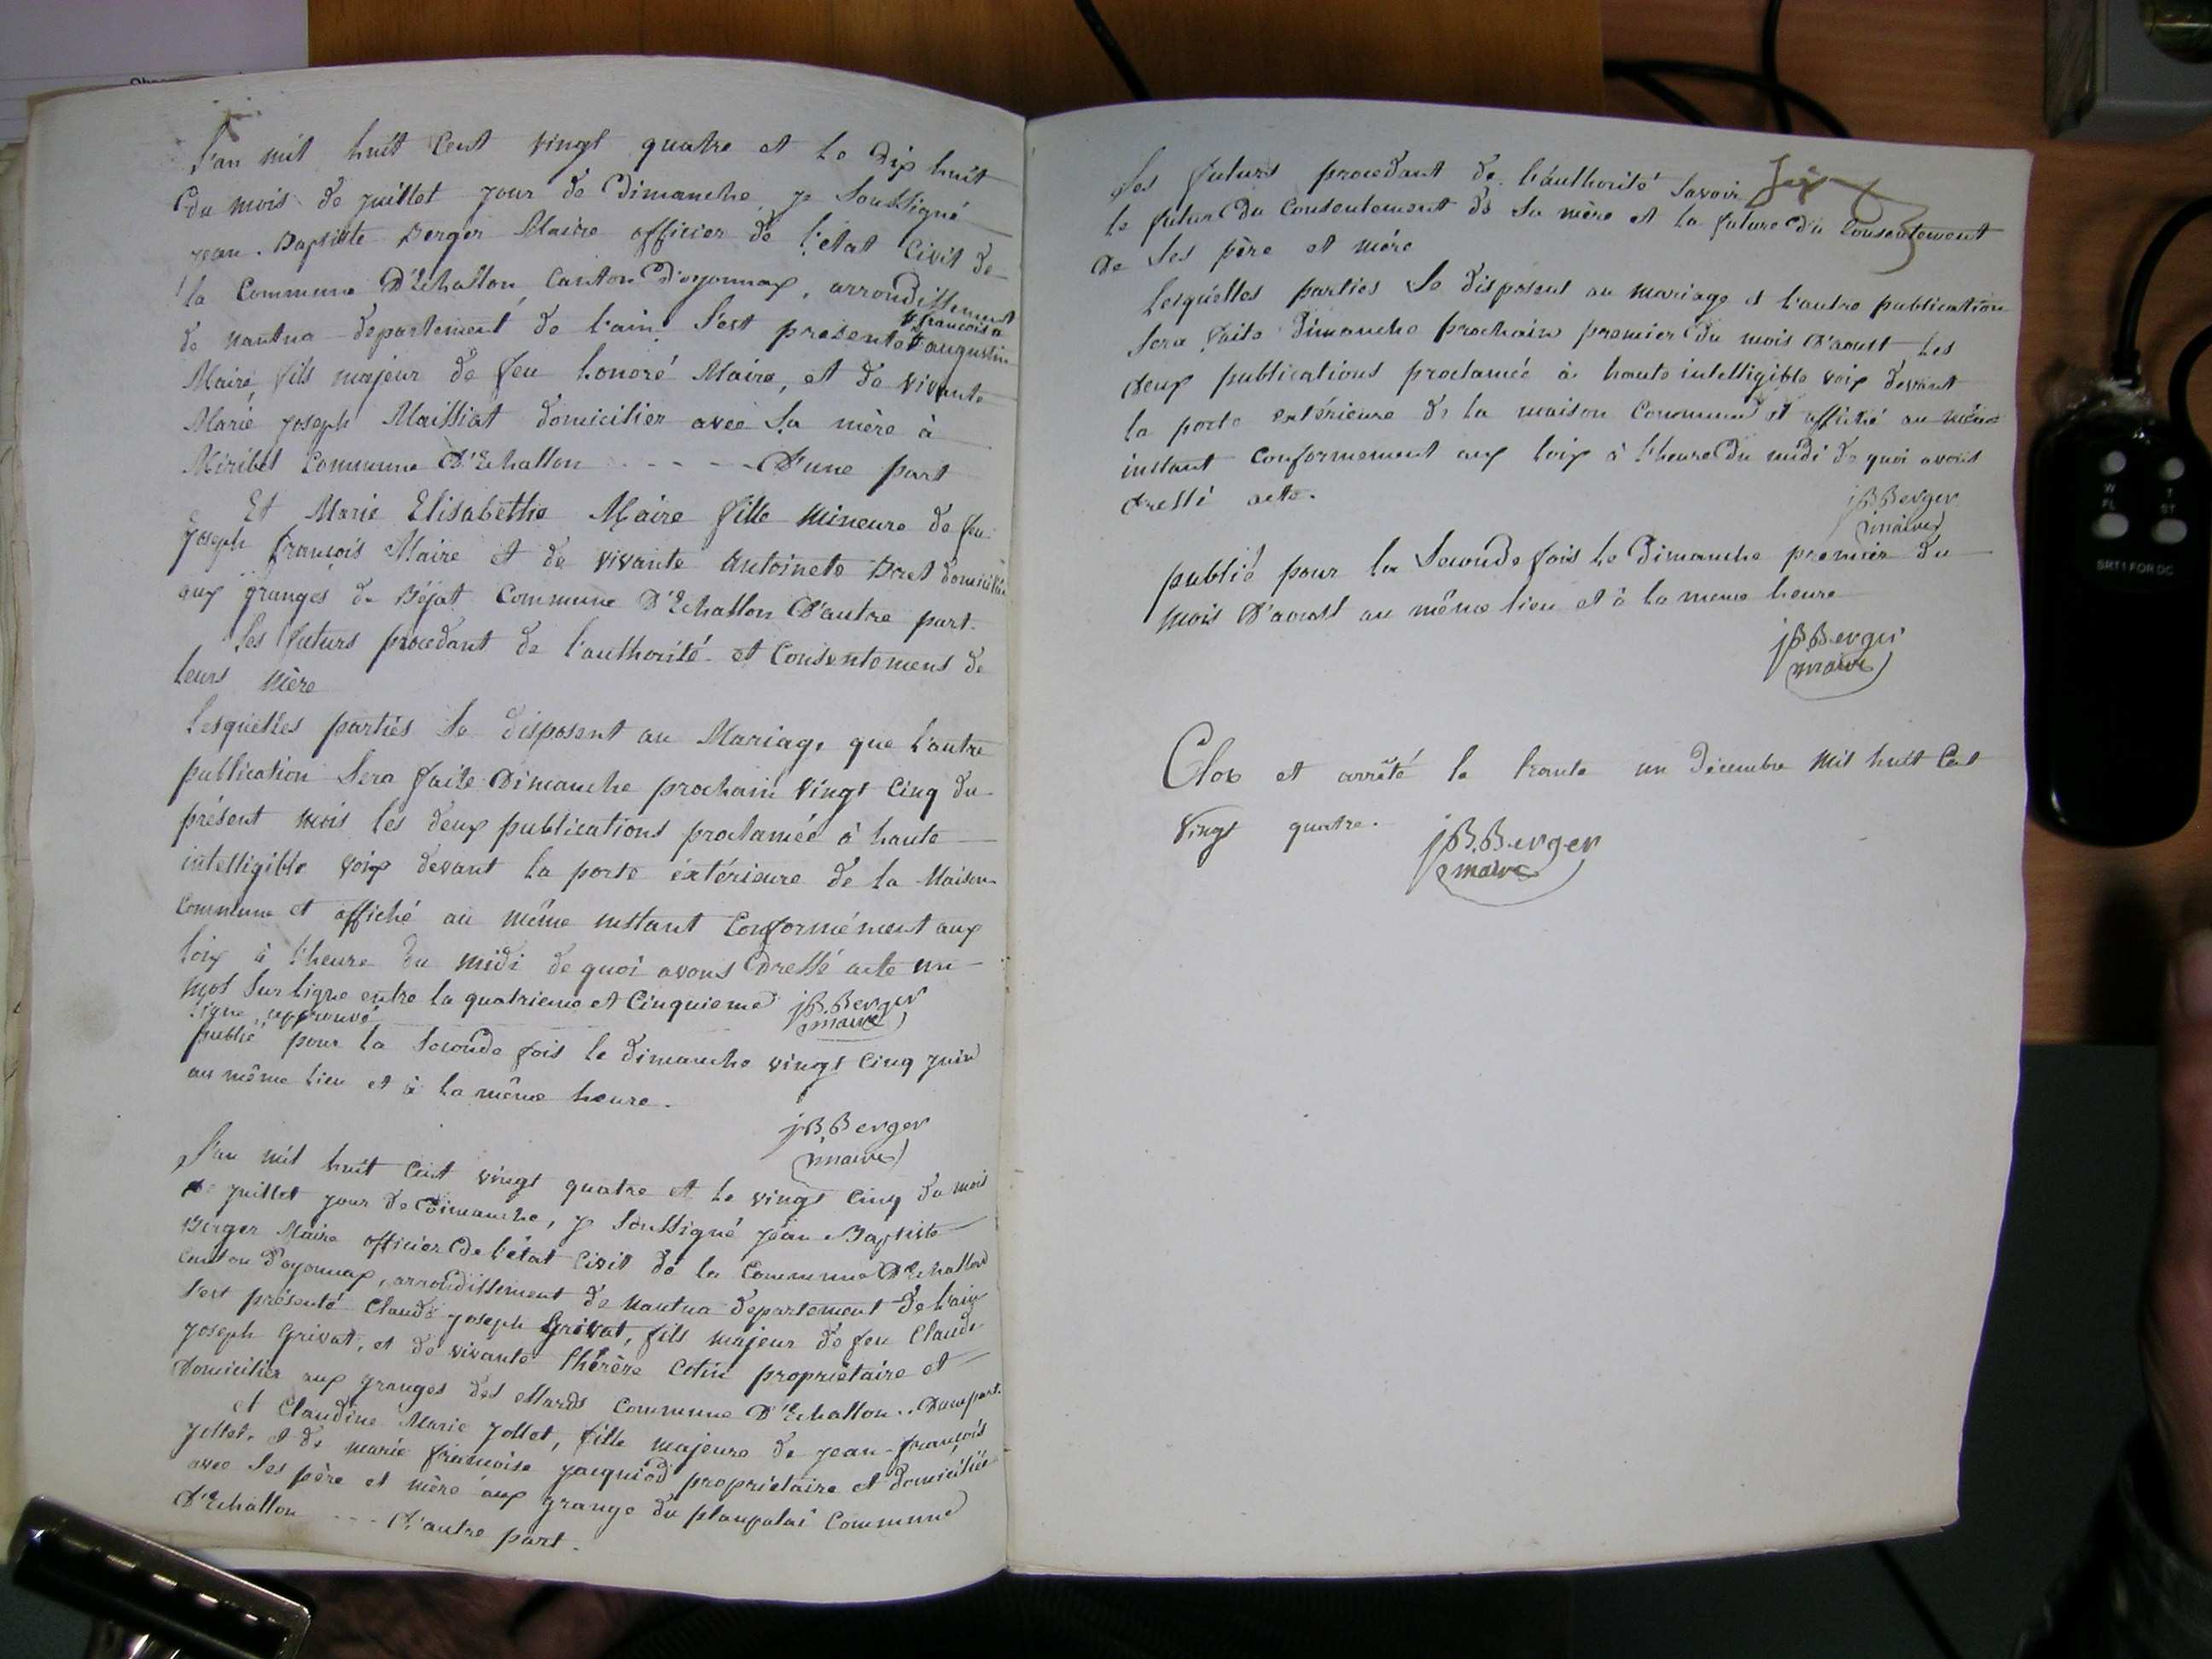 L'an mil huit Cent vingt quatre et le dix huit
du mois de juillet jour de Dimanche, je Soussigné
jean-Baptiste Berger Maire officier de l'état Civil de
la Commune D'Echallon Canton D'oyonnax, arrondissement
de nantua departement de l'ain. S'est présenté augustin françois
Maire, fils majeur de feu honoré Maire, et de vivante
Marie joseph Maissiat domicilier avec Sa mère à
Miribel Commune D'Echallon - - - - - D'une part
Et Marie Elisabethe Maire fille Mineure de feu
joseph françois Maire et de vivante Antoinete Boret domiciliée
aux granges de Béjat Commune D'Echallon D'autre part.
Les futurs procedant de l'authorité et Consentemens de
leurs mère
Lesquelles parties Se disposent au Mariage que l'autre
publication Sera faite Dimanche prochain vingt Cinq du
présent mois les deux publications proclamée à haute
intelligible voix devant la porte éxtérieure de la Maison
Commune et affiché au même instant Conformément aux
loix à l'heure du midi de quoi avons Dressé acte un
mot Sur ligne entre la quatrieme et Cinquieme jB.Berger
ligne, approuvé maire
publié pour la Seconde fois le dimanche vingt Cinq juin
au même lieu et à la même heure.
jB.Berger
maire
L'an mil huit Cent vingt quatre et le vingt Cinq du mois
de juillet jour de Dimanche, je Soussigné jean-Baptiste
Berger Maire officier de l'état Civil de la Commune D'Echallon
Canton D'oyonnax, arrondissement de nantua departement de l'ain
S'est présenté Claude joseph Grivat, fils majeur de feu Claude
joseph Grivat, et de vivante thérèse Cotin propriétaire et
Domicilier aux granges des essards Commune D'Echallon .. D'une part.
et Claudine Marie jollet, fille majeure de jean-françois
jollet, et de marie françoise jacquiod propriétaire et domiciliée
avec Ses père et mère aux grange du planpalai Commune
D'Echallon - - - D'autre part.
Les futurs procedant de l'authorité Savoir
le futur Du Consentement de Sa mère et la future Du Consentement
De Ses père et mère
Lesquelles parties Se disposent au mariage et l'autre publication
Sera faite Dimanche prochain premier Du mois D'aoust, Les
deux publications proclamée à haute intelligible voix devant
la porte extérieure de la maison Commune et affiché au même
instant Conformement aux loix à l'heure Du midi De quoi avons
dressé acte.
jB.Berger
maire
publié pour la Seconde fois le Dimanche premier du
mois D'aoust au même lieu et à la meme heure
jB.Berger
maire
Clos et arrêté le trente un Décembre mil huit Cent
vingt quatre.
jB.Berger
maire
SRT1 FOR DC
W
T
FL
ST